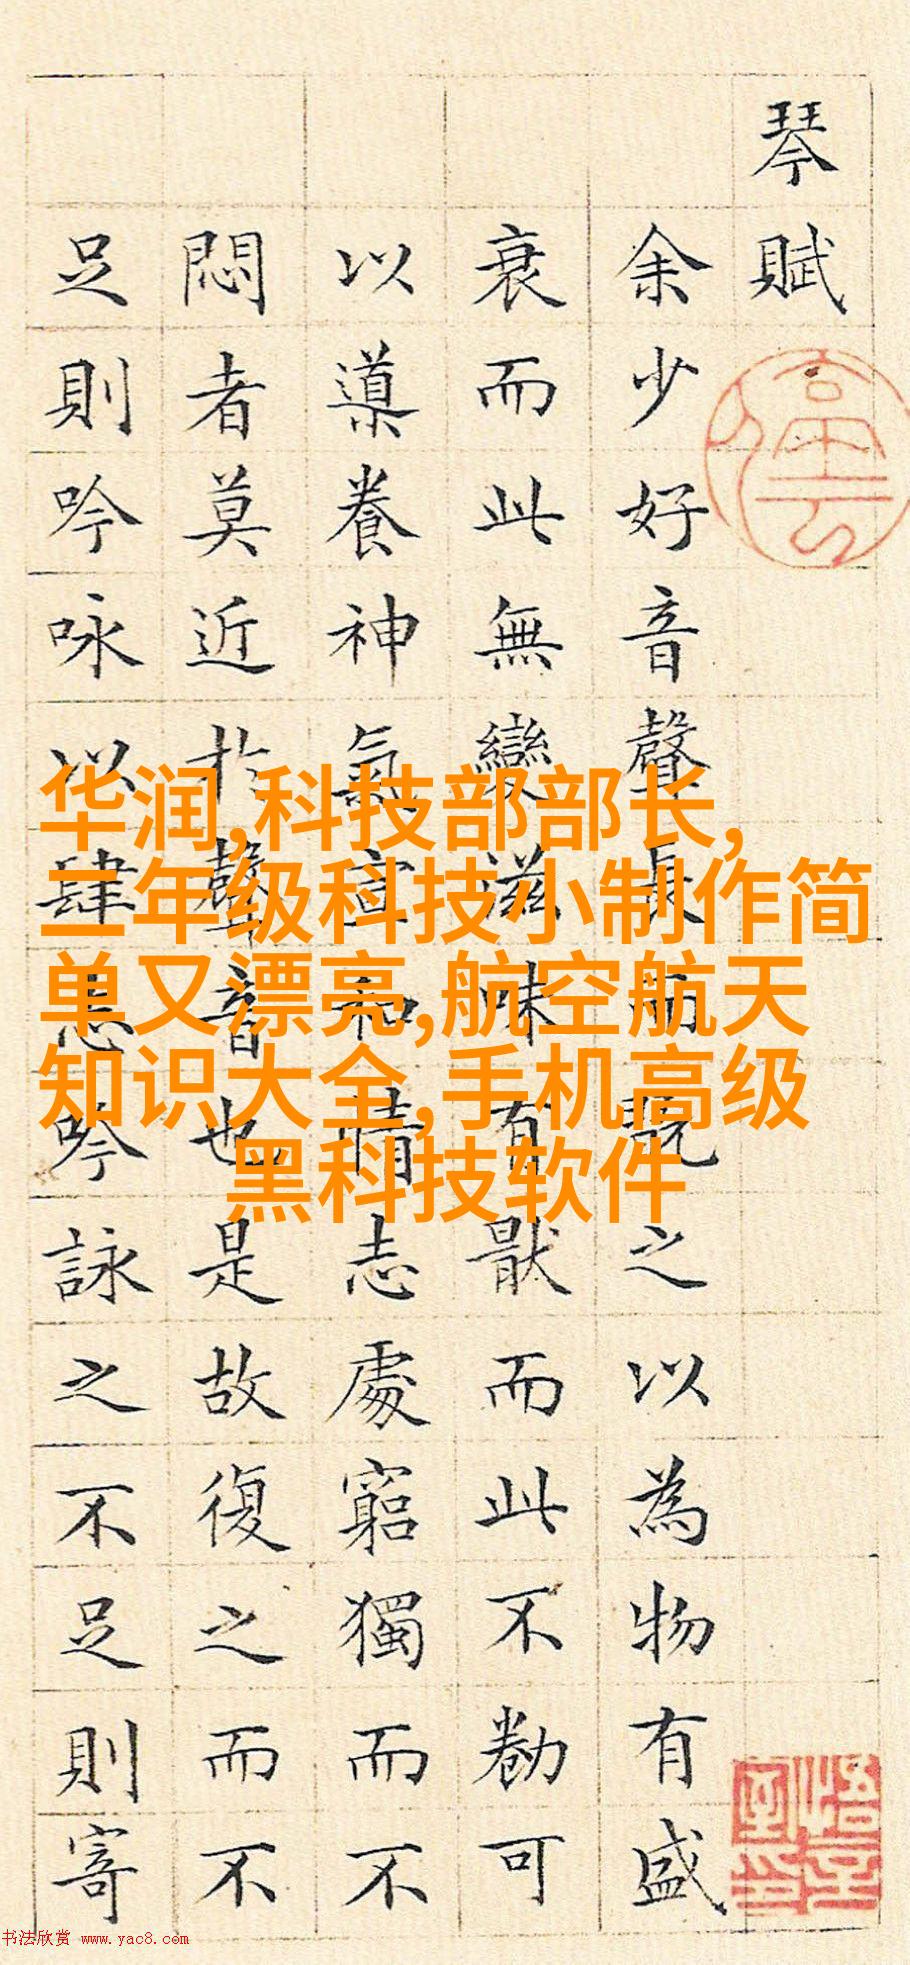 琴賦
停云
余少好音聲長而翫之以為物有盛
衰而此無變滋味有猒而此不勌可
以導養神氣宣和情志處窮獨而不
悶者莫近於聲音也是故復之而不
足則吟咏以肆志吟詠之不足則寄
悟言室印
华润,科技部部长,
三年级科技小制作简
单又漂亮,航空航天
知识大全,手机高级
黑科技软件
书法欣赏 www.yac8.com